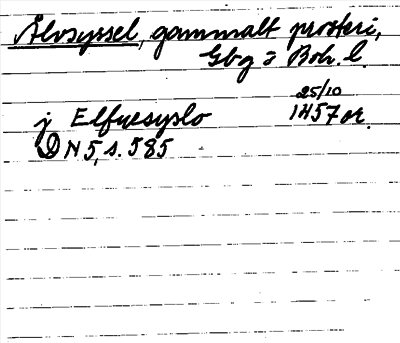 Älvsyssel, gammalt prosteri,
Gbg o Boh. l.
25/10
j Elfuesyslo 1457 or.
DN 5, s. 585